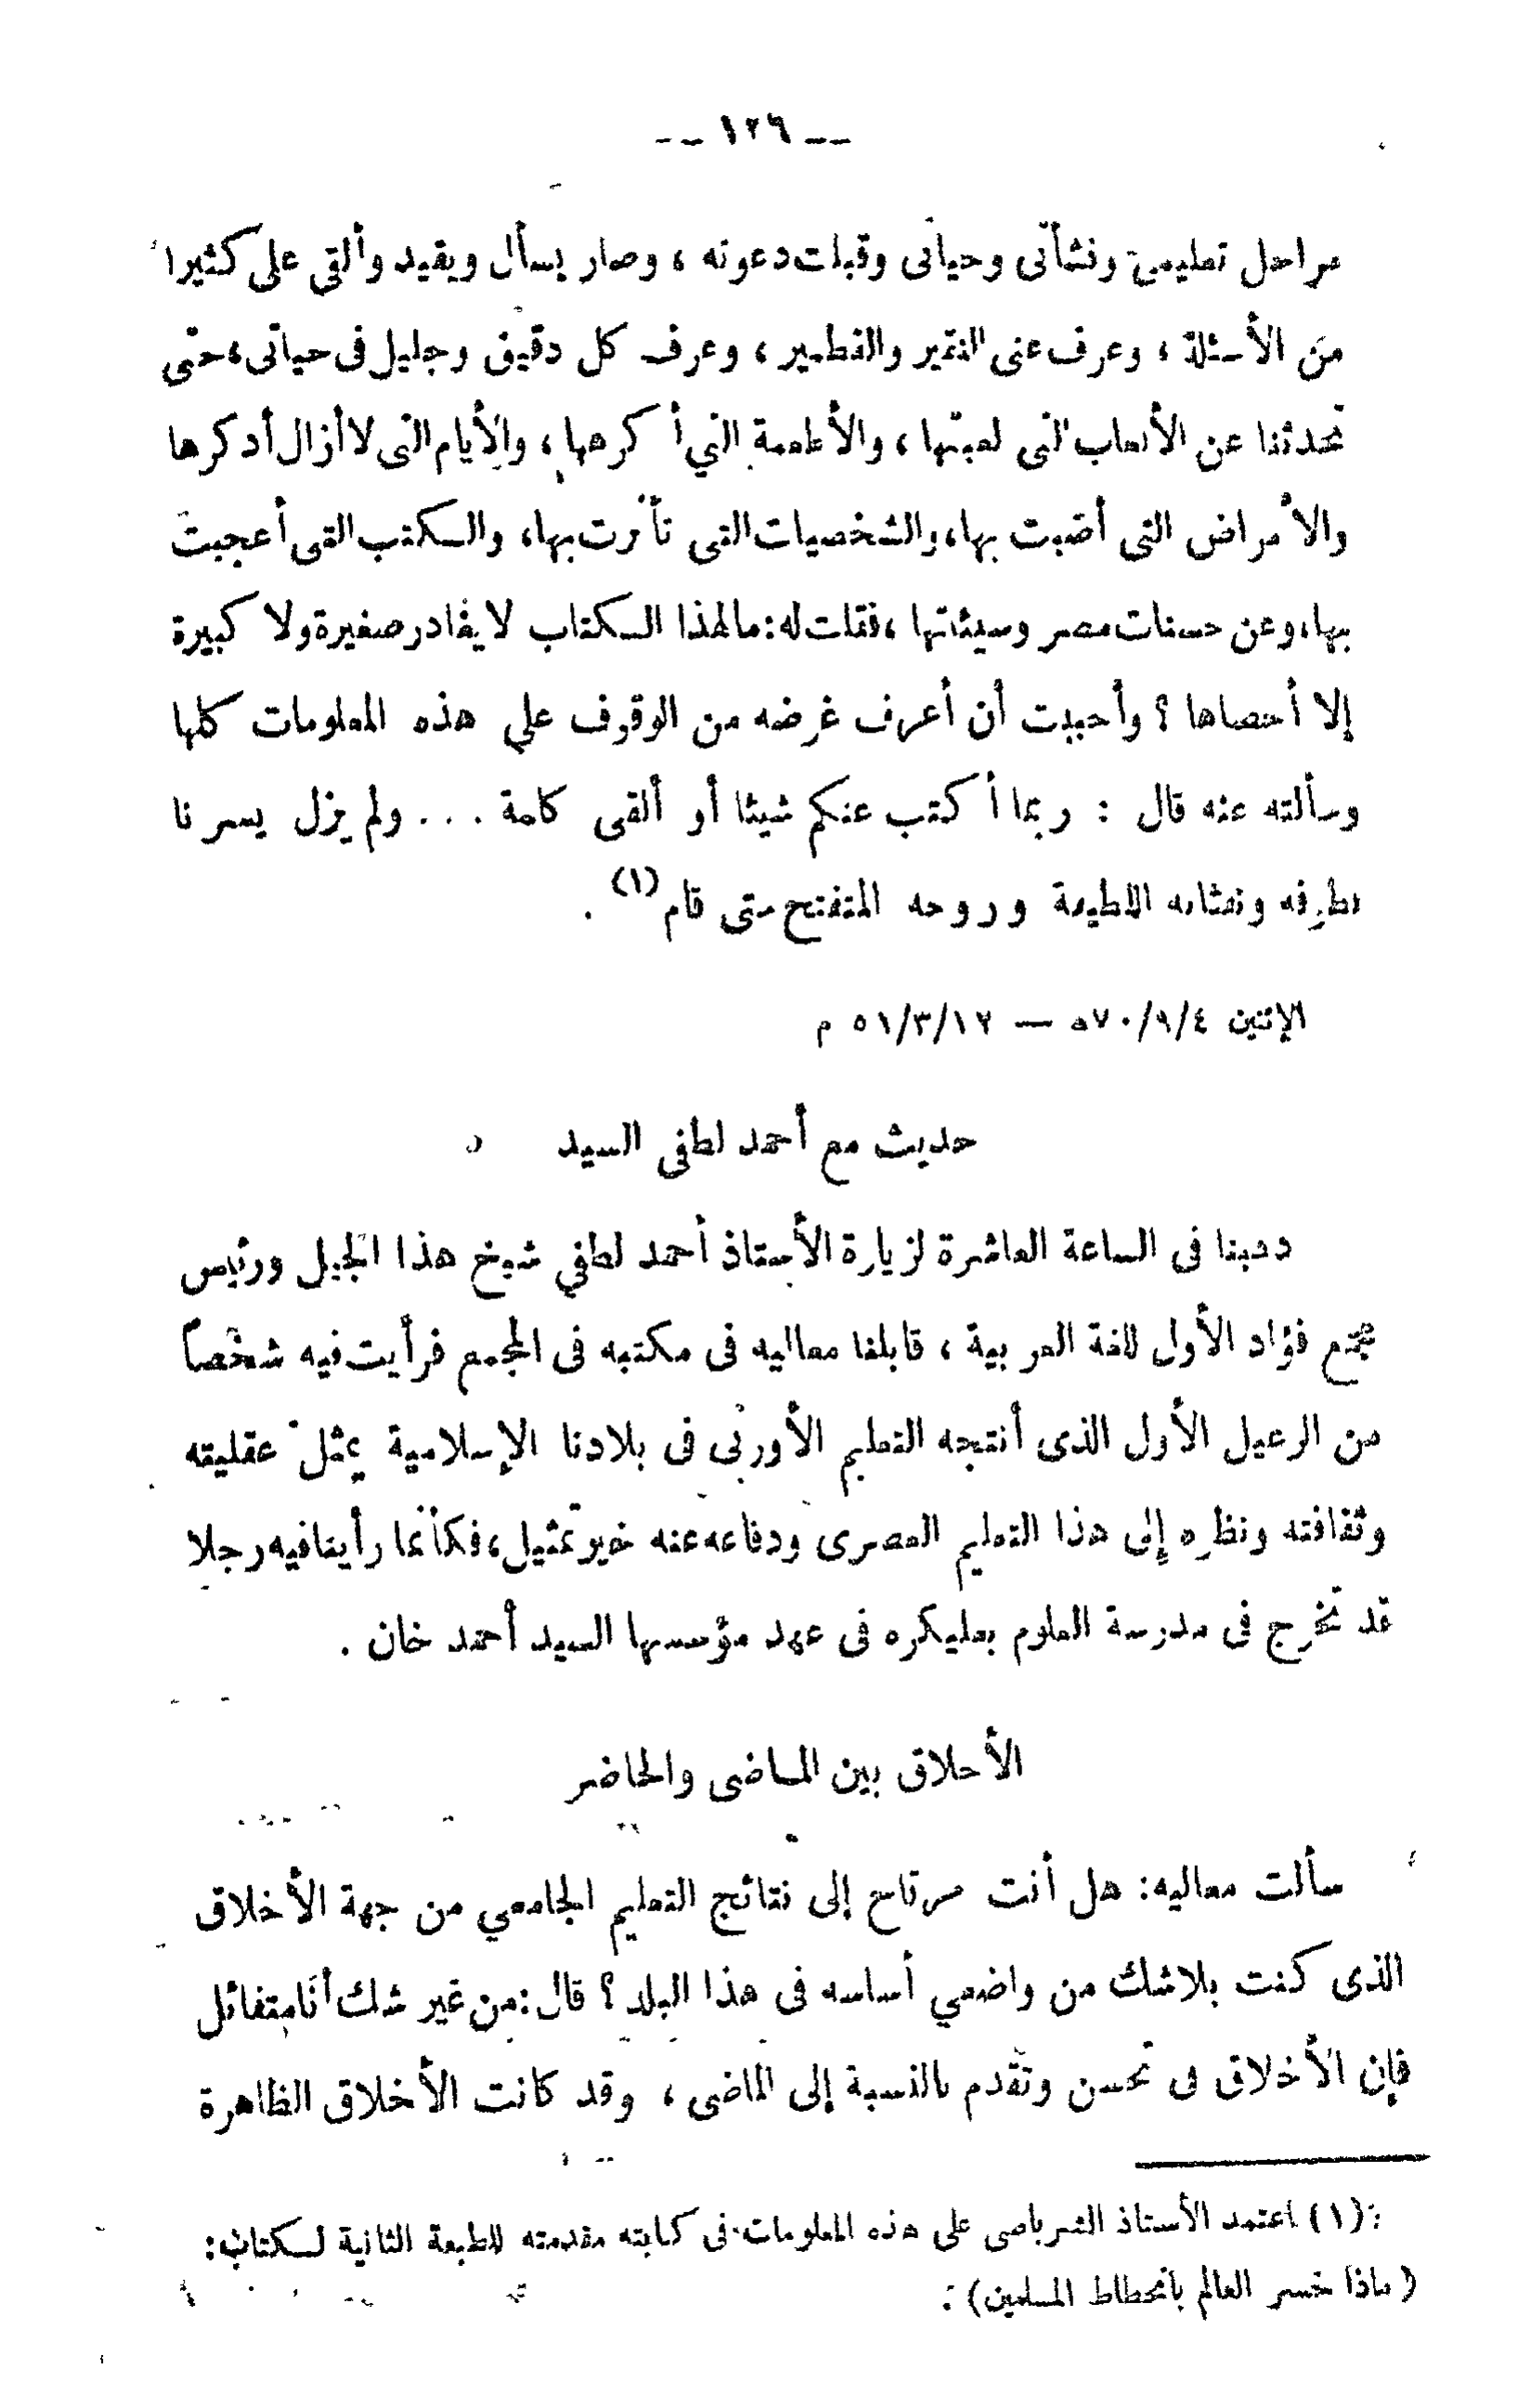 -- ١٢٦ --
مراحل تعليمى ونشأتى وحياتى وقبلت دعوته ، وصار يسأل ويقيد وألقى على كثيرا
من الأسئلة ، وعرف عنى النقير والقطمير ، وعرف كل دقيق وجليل فى حياتى ، حتى
تحدثنا عن الألعاب التى لعبتها ، والأطعمة التي أكرهها ، والأيام التى لا أزال أذكرها
والأمراض التى أصبت بها ، والشخصيات التى تأثرت بها ، والكتب التى أعجبت
بها ، وعن حسنات مصر وسيئاتها ، فقلت له : مالهذا الكتاب لا يغادر صغيرة ولا كبيرة
إلا أحصاها ؟ وأحببت أن أعرف غرضه من الوقوف علي هذه المعلومات كلها
وسألته عنه قال : ربما أكتب عنكم شيئا أو ألقى كلمة ... ولم يزل يسرنا
بظرفه ونفثاته اللطيفة وروحه المتفتح متى قام (١) .
الإثنين ٧٠/٩/٤ه — ٥١/٣/١٢ م
حديث مع أحمد لطفى السيد
ذهبنا فى الساعة العاشرة لزيارة الأستاذ أحمد لطفي شيخ هذا الجيل ورئيس
مجمع فؤاد الأول للغة العربية ، قابلنا معاليه فى مكتبه فى المجمع فرأيت فيه شخصاً
من الرعيل الأول الذى أنتجه التعليم الأوربى فى بلادنا الإسلامية يمثل عقليته
وثقافته ونظره إلى هذا التعليم العصرى ودفاعه عنه خير تمثيل ، فكأنما رأينا فيه رجلا
قد تخرج فى مدرسة العلوم بعليكره فى عهد مؤسسها السيد أحمد خان .
الأخلاق بين الماضى والحاضر
سألت معاليه : هل أنت مرتاح إلى نتائج التعليم الجامعي من جهة الأخلاق
الذى كنت بلا شك من واضعي أساسه فى هذا البلد ؟ قال : من غير شك أنا متفائل
فإن الأخلاق فى تحسن وتقدم بالنسبة إلى الماضى ، وقد كانت الأخلاق الظاهرة
(١) اعتمد الأستاذ الشرباصى على هذه المعلومات فى كتابته مقدمته للطبعة الثانية لكتاب :
( ماذا خسر العالم بانحطاط المسلمين ) :